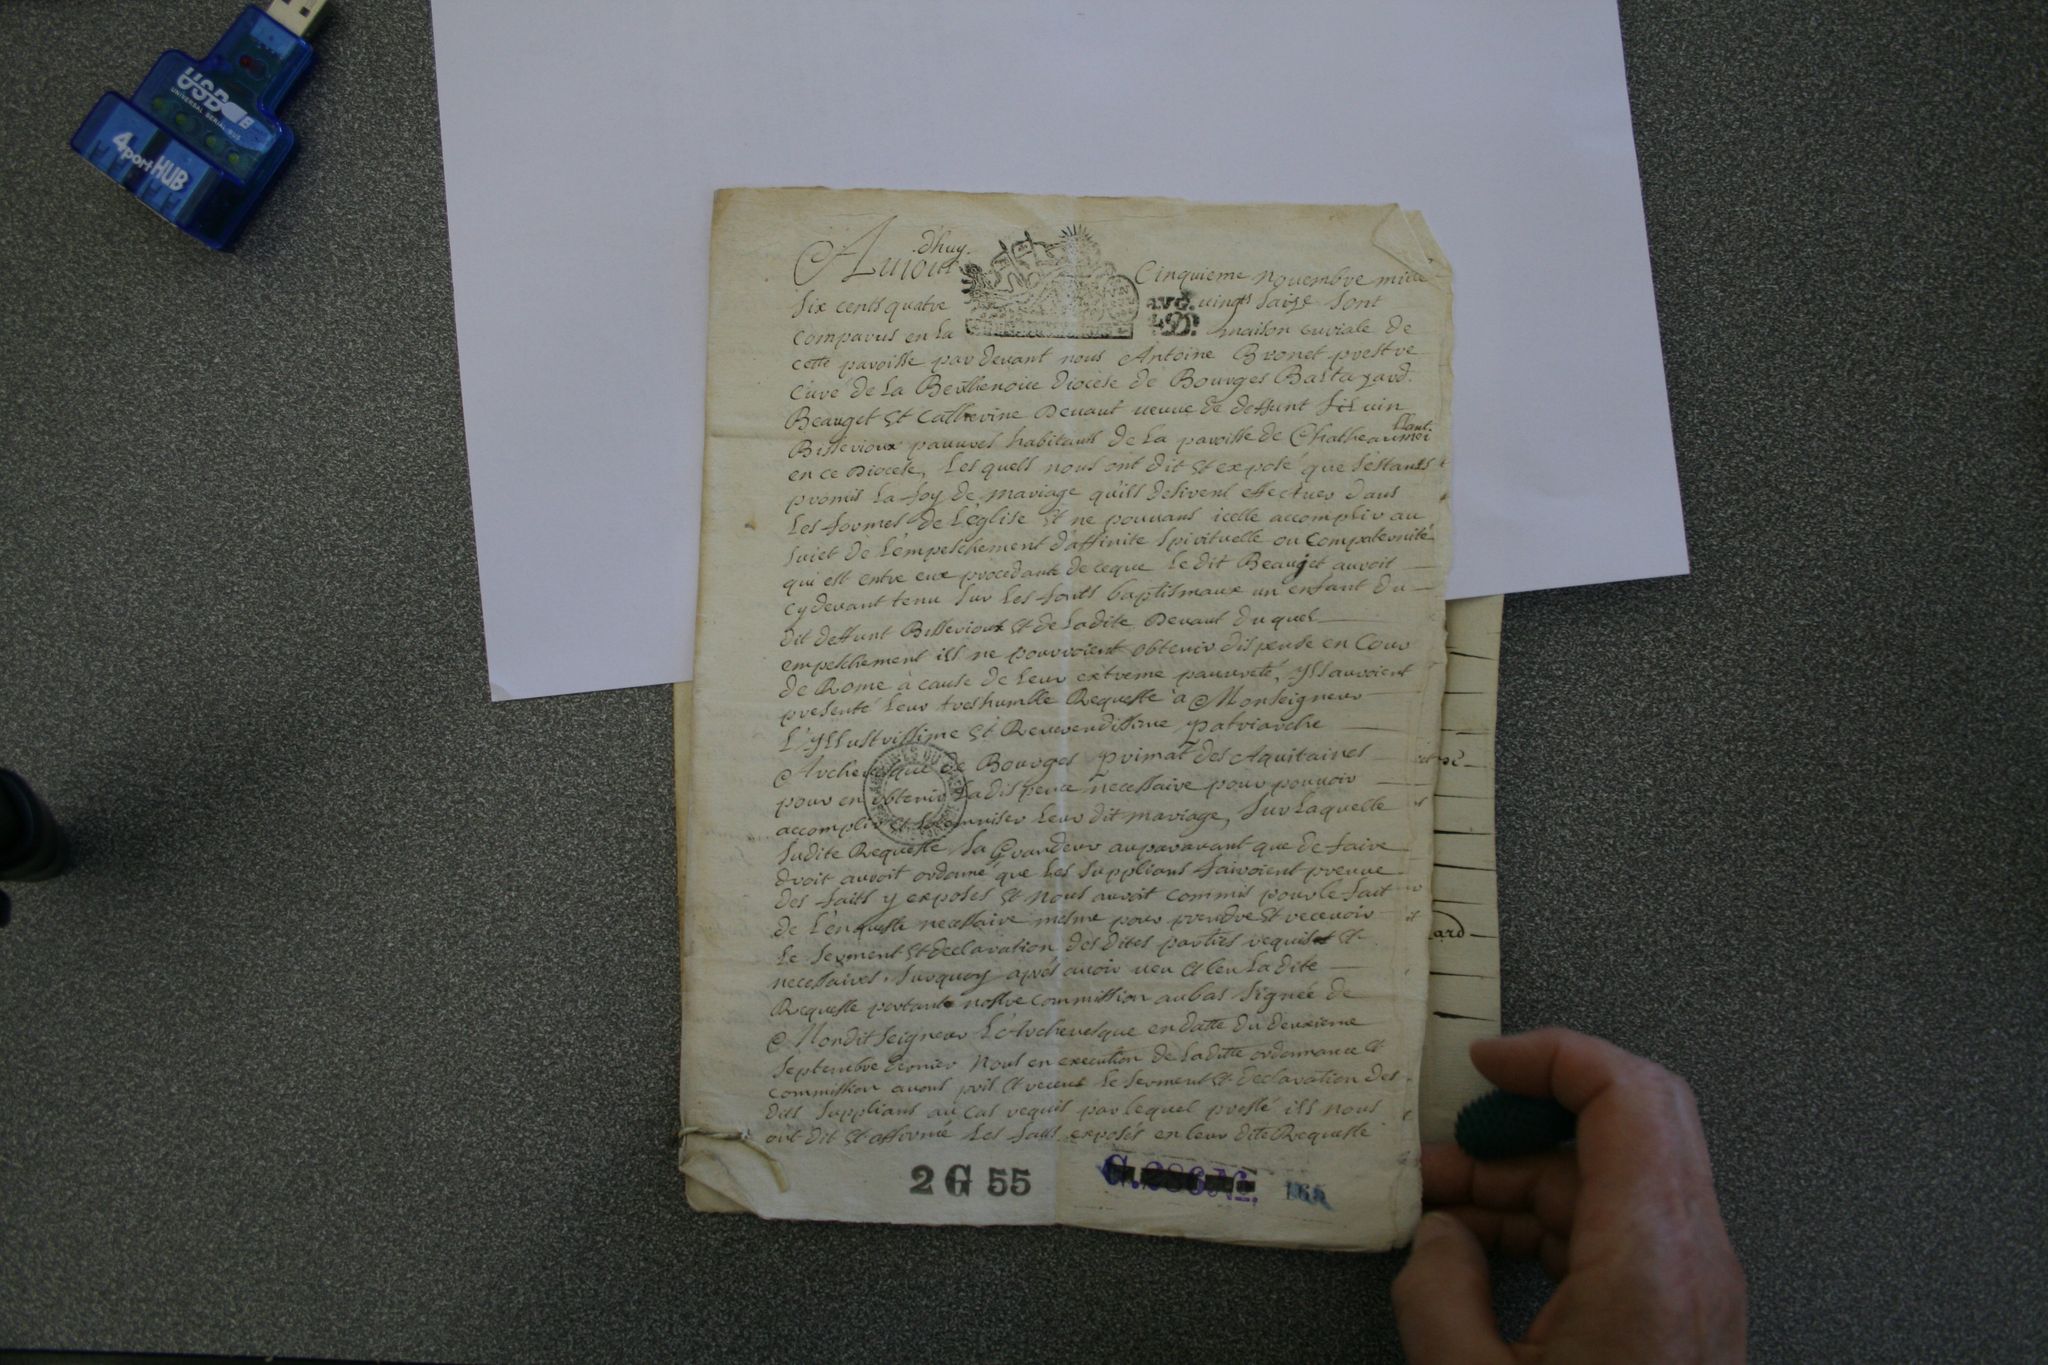 USB
UNIVERSAL SERIAL BUS
4 port HUB
Aujour dhuy Cinquieme novembre mille
six cents quatre vingts saize sont
comparus en la maison curiale de
cette paroisse par devant nous Antoine Bronet prestre
curé de La Berthenoice diocese de Bourges
Beauget et Catherine Devaut veuve de deffunt Silvin
Bissrioux pauvres habitans de la paroisse de
en ce Diocese, Les quels nous ont dit et exposé que s'estants
promis La foy de mariage qu'ils desirent effectuer dans
Les formes de L'église et ne pouvans icelle accomplir au
sujet de L'empeschement d'affinité spirituelle ou compaternité
qui est entre eux procedante de ceque Le dit Beauget auroit
cy devant tenu sur Les fonts baptismaux un enfant du
dit deffunt et de Ladite Devaut du quel
empeschement ils ne pourroient obtenir dispense en Cour
de Rome à cause de Leur extreme pauvreté, Ils auroient
presenté Leur tres humble Requeste à Monseigneur
L'Illustrissime et Reverendissime patriarche
Archevesque de Bourges primat des Aquitaines
pour en obtenir La dispence necessaire pour pouvoir
accomplir et solemniser Leur dit mariage, Sur Laquelle
sudite Requeste Sa Grandeur auparavant que de faire
droit auroit ordonné que Les supplians fairoient preuve
des faits y exposés et nous auroit commis pour le fait
de L'enqueste necessaire mesme pour prendre et recevoir
Le serment et declaration des dites parties requises et
necessaires. Surquoy après avoir veu et leu La dite
Requeste portante nostre commission au bas signée de
Mondit Seigneur L'Archevesque en datte du deuxieme
septembre dernier Nous en execution de Laditte ordonnance et
commission avons pris et receut Le serment et declaration des
dits supplians au cas requis par lequel presté ils nous
ont dit et affirmé Les faits exposés en leur dite Requeste
2 G 55
165
ard